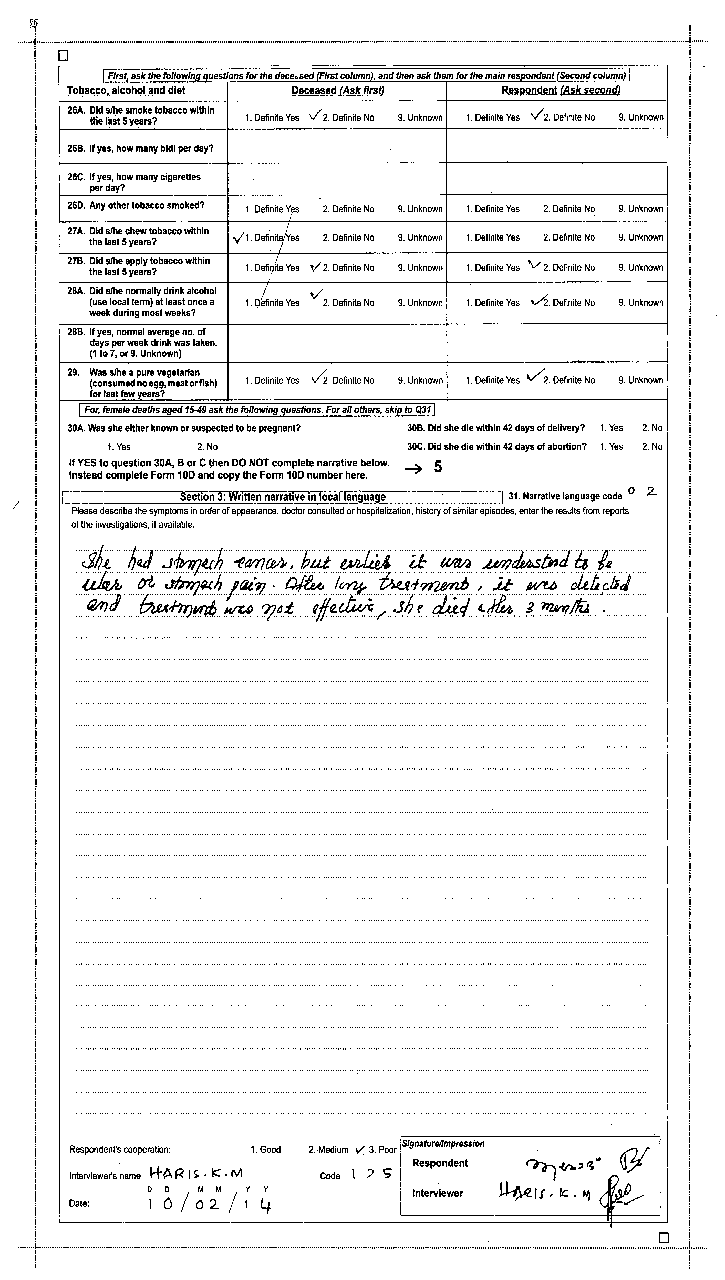 First, ask the following questions for the deceased (First column), and then ask them for the main respondent (Second column)
Tobacco, alcohol and diet Deceased (Ask first) Respondent (Ask second)
26A. Did s/he smoke tobacco within the last 5 years? 1. Definite Yes ✓ 2. Definite No 9. Unknown 1. Definite Yes ✓ 2. Definite No 9. Unknown
26B. If yes, how many bidi per day?
26C. If yes, how many cigarettes per day?
26D. Any other tobacco smoked? 1. Definite Yes 2. Definite No 9. Unknown 1. Definite Yes 2. Definite No 9. Unknown
27A. Did s/he chew tobacco within the last 5 years? ✓ 1. Definite Yes 2. Definite No 9. Unknown 1. Definite Yes 2. Definite No 9. Unknown
27B. Did s/he apply tobacco within the last 5 years? 1. Definite Yes ✓ 2. Definite No 9. Unknown 1. Definite Yes ✓ 2. Definite No 9. Unknown
28A. Did s/he normally drink alcohol (use local term) at least once a week during most weeks? 1. Definite Yes ✓ 2. Definite No 9. Unknown 1. Definite Yes ✓ 2. Definite No 9. Unknown
28B. If yes, normal average no. of days per week drink was taken. (1 to 7, or 9. Unknown)
29. Was s/he a pure vegetarian (consumed no egg, meat or fish) for last few years? 1. Definite Yes ✓ 2. Definite No 9. Unknown 1. Definite Yes ✓ 2. Definite No 9. Unknown
For, female deaths aged 15-49 ask the following questions. For all others, skip to Q31
30A. Was she either known or suspected to be pregnant? 30B. Did she die within 42 days of delivery? 1. Yes 2. No
1. Yes 2. No 30C. Did she die within 42 days of abortion? 1. Yes 2. No
If YES to question 30A, B or C then DO NOT complete narrative below.
Instead complete Form 10D and copy the Form 10D number here. → 5
Section 3: Written narrative in local language 31. Narrative language code 0 2
Please describe the symptoms in order of appearance, doctor consulted or hospitalization, history of similar episodes, enter the results from reports
of the investigations, if available.
She had stomach cancer, but earlier it was understood to be
ulcer or stomach pain. After long treatment, it was detected
and treatment was not effective, she died after 3 months.
Respondent's cooperation: 1. Good 2. Medium ✓ 3. Poor Signature/Impression
Respondent
Interviewer's name HARIS.K.M Code 1 2 5
Interviewer HARIS.K.M
D D M M Y Y
Date: 10/02/14